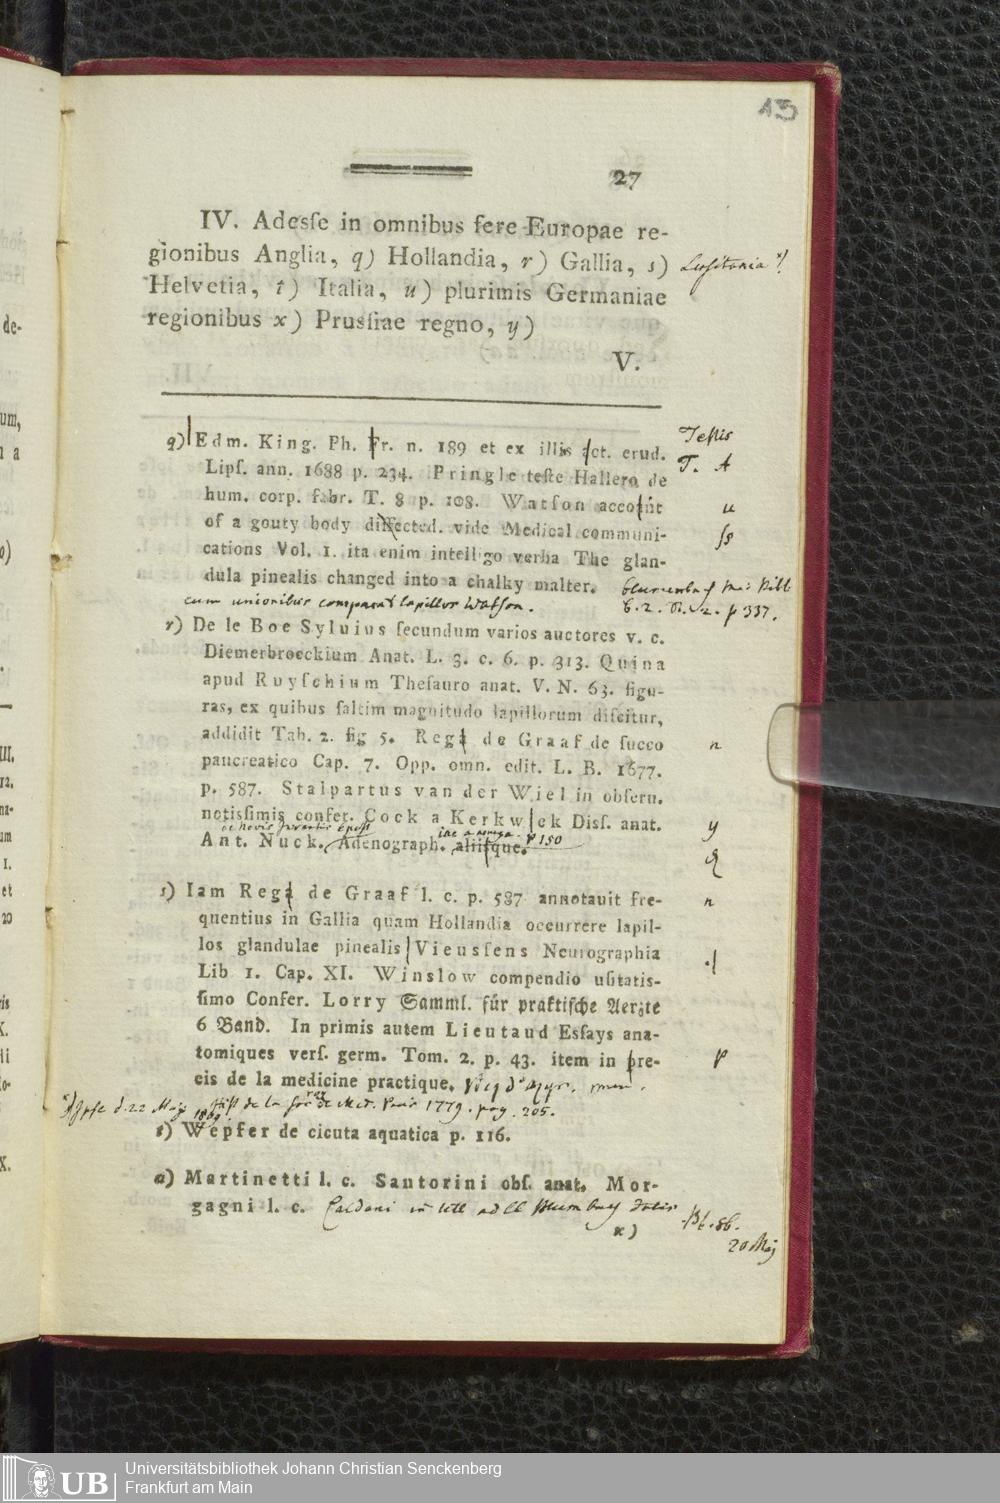 13
27
IV. Adesſe in omnibus fere Europae re-
gionibus Anglia, q) Hollandia, r) Gallia, s) Lusitania *)
Helvetia, t) Italia, u) plurimis Germaniae
regionibus x) Prusſiae regno, y)
V.
q) Edm. King. Ph. Fr. n. 189 et ex illis act. erud. Testis
Lipſ. ann. 1688 p. 234. Pringle teſte Hallero de T. A
hum. corp. fabr. T. 8 p. 108. Watſon account u
of a gouty body disſected. vide Medical communi- ſs
cations Vol. 1. ita enim intelligo verba The glan-
dula pinealis changed into a chalky malter. Blumenbach Med. Bibl
cum unionibus comparat lapillos Watson. p 337.
r) De le Boe Syluius ſecundum varios auctores v. c.
Diemerbroeckium Anat. L. 3. c. 6. p. 313. Quina
apud Ruyſchium Theſauro anat. V. N. 63. figu-
ras, ex quibus ſaltim magnitudo lapillorum diſcitur,
addidit Tab. 2. fig 5. Rega de Graaf de ſucco n
pancreatico Cap. 7. Opp. omn. edit. L. B. 1677.
p. 587. Stalpartus van der Wiel in obſeru.
notisſimis confer. Cock a Kerkwiek Disſ. anat. y
de novis inventis Epist p 150
Ant. Nuck. Adenograph. aliisque.
s) Iam Rega de Graaf l. c. p. 587 annotauit fre- n
quentius in Gallia quam Hollandia occurrere lapil-
los glandulae pinealis Vieusſens Neurographia
Lib 1. Cap. XI. Winslow compendio uſitatis-
ſimo Confer. Lorry Samml. für praktiſche Aerzte
6 Band. In primis autem Lieutaud Esſays ana-
tomiques verſ. germ. Tom. 2. p. 43. item in pre- p
cis de la medicine practique. Vicq d'Azyr.
*) Ipse d. 22 Maji 1809. Hist de la soc roy de Med. Paris 1779. pag. 205.
t) Wepfer de cicuta aquatica p. 116.
u) Martinetti l. c. Santorini obſ. anat. Mor-
gagni l. c. Caldani in litt ad Cl Blumenbach datis
86.
20 Maj
x)
Universitätsbibliothek Johann Christian Senckenberg
UB
Frankfurt am Main